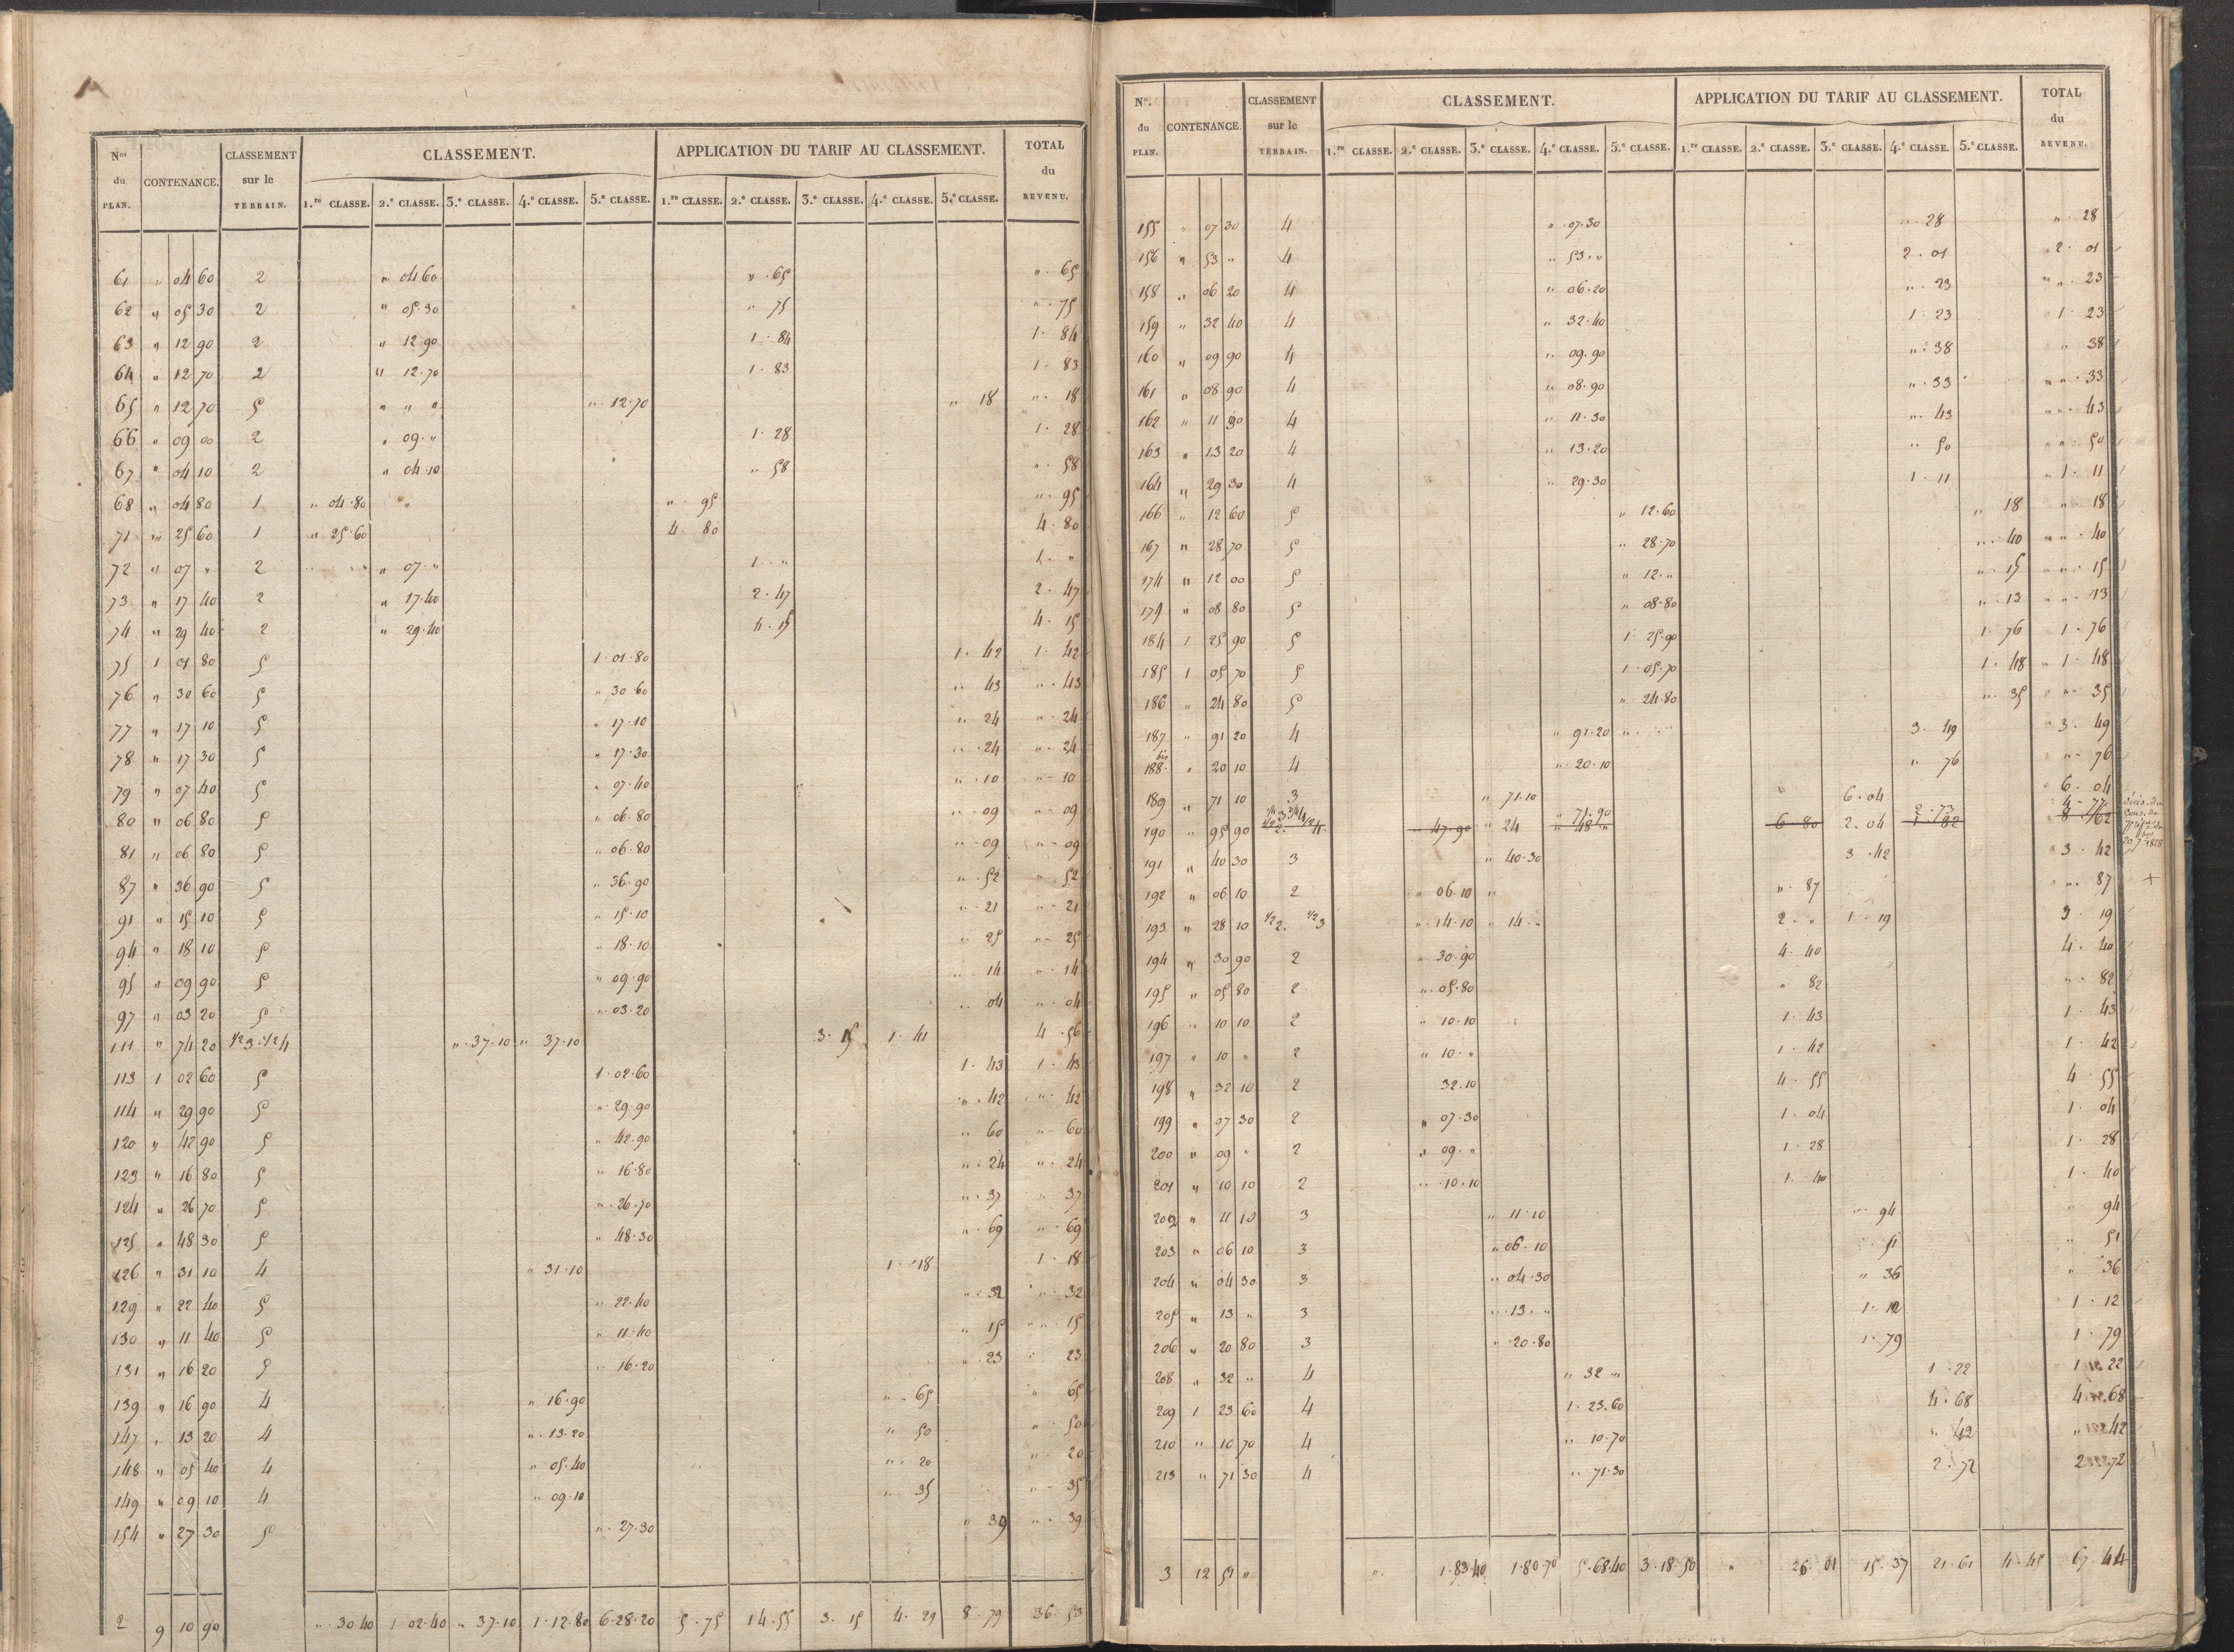 Nos du PLAN. CONTENANCE. CLASSEMENT sur le TERRAIN. CLASSEMENT. APPLICATION DU TARIF AU CLASSEMENT. TOTAL du REVENU.
1.re CLASSE. 2.e CLASSE. 3.e CLASSE. 4.e CLASSE. 5.e CLASSE. 1.re CLASSE. 2.e CLASSE. 3.e CLASSE. 4.e CLASSE. 5.e CLASSE.
61 " 04 60 2 " 04 60 " . 65 " . 65
62 " 05 30 2 " 05.30 " . 75 " . 75
63 " 12 90 2 " 12.90 1 . 84 1 . 84
64 " 12 70 2 " 12.70 1 . 83 1 . 83
65 " 12 70 5 " " " " 12.70 " 18 " . 18
66 " 09 00 2 " 09 . " 1 . 28 1 . 28
67 " 04 10 2 " 04.10 " . 58 " . 58
68 " 04 80 1 " 04.80 " " . 95 " . 95
71 " 25 60 1 " 25.60 4 . 80 4 . 80
72 " 07 " 2 " 07 . " 1 . " 1 . "
73 " 17 40 2 " 17.40 2 . 47 2 . 47
74 " 29 40 2 " 29.40 4 . 15 4 . 15
75 1 01 80 5 1 . 01.80 1 . 42 1 . 42
76 " 30 60 5 " 30.60 " . 43 " . 43
77 " 17 10 5 " 17.10 " . 24 " . 24
78 " 17 30 5 " 17.30 " . 24 " . 24
79 " 07 40 5 " 07.40 " . 10 " . 10
80 " 06 80 5 " 06.80 " . 09 " . 09
81 " 06 80 5 " 06.80 " . 09 " . 09
87 " 36 90 5 " 36.90 " . 52 " . 52
91 " 15 10 5 " 15.10 " . 21 " . 21
94 " 18 10 5 " 18.10 " . 25 " . 25
95 " 09 90 5 " 09.90 " . 14 " . 14
97 " 03 20 5 " 03.20 " . 04 " . 04
111 " 74 20 1/2 3 . 1/2 4 " 37.10 " 37.10 3 . 15 1 . 41 4 . 56
113 1 02 60 5 1 . 02.60 1 . 43 1 . 43
114 " 29 90 5 " 29.90 " . 42 " . 42
120 " 42 90 5 " 42.90 " . 60 " . 60
123 " 16 80 5 " 16.80 " . 24 " . 24
124 " 26 70 5 " 26.70 " . 37 " . 37
125 " 48 30 5 " 48.30 " . 69 " . 69
126 " 31 10 4 " 31.10 1 . 18 1 . 18
129 " 22 40 5 " 22.40 " . 32 " . 32
130 " 11 40 5 " 11.40 " 15 " . 15
131 " 16 20 5 " 16.20 " . 23 " 23
139 " 16 90 4 " 16.90 " . 65 " 65
147 " 13 20 4 " 13.20 " 50 " 50
148 " 05 40 4 " 05.40 " . 20 " . 20
149 " 09 10 4 " 09.10 " 35 " . 35
154 " 27 30 5 " 27.30 " 39 " . 39
2 9 10 90 " . 30.40 1 02.40 " . 37.10 1.12.80 6.28.20 5 . 75 14.55 3 . 15 4 . 29 8 . 79 36 . 53
Nos. du PLAN. CONTENANCE. CLASSEMENT sur le TERRAIN. CLASSEMENT. APPLICATION DU TARIF AU CLASSEMENT. TOTAL du REVENU.
1.re CLASSE. 2.e CLASSE. 3.e CLASSE. 4.e CLASSE. 5.e CLASSE. 1.re CLASSE. 2.e CLASSE. 3.e CLASSE. 4.e CLASSE. 5.e CLASSE.
155 " 07 30 4 " 07.30 " . 28 " . 28
156 " 53 " 4 " 53 . " 2 . 01 2 . 01
158 " 06 20 4 " 06.20 " . 23 " . 23
159 " 32 40 4 " 32.40 1 . 23 1 . 23
160 " 09 90 4 " 09.90 " . 38 " 38
161 " 08 90 4 " 08.90 " . 33 " . 33
162 " 11 30 4 " 11.30 " . 43 " . 43
163 " 13 20 4 " 13.20 " 50 " . 50
164 " 29 30 4 " 29.30 1 . 11 1 . 11
166 " 12 60 5 " 12.60 " 18 " . 18
167 " 28 70 5 " 28.70 " . 40 " . 40
174 " 12 00 5 " 12 . " " . 15 " . 15
179 " 08 80 5 " 08.80 " . 13 " . 13
184 1 25 90 5 1 . 25.90 1 . 76 1 . 76
185 1 05 70 5 1 . 05.70 1 . 48 1 . 48
186 " 24 80 5 " 24.80 " . 35 " . 35
187 " 91 20 4 " 91.20 3 . 49 3 . 49
188 bis " 20 10 4 " 20.10 " 76 " . 76
189 " 71 10 3 " 71.10 6 . 04 6 . 04
1/4 3 3/4 4 " 71.90 2 . 73 4 . 77
190 " 95 90 1/2 2. 1/2 4. " 47.90 " 24 " 48 " 6 . 80 2 . 04 1 . 82 8 . 62
191 " 40 30 3 " 40.30 3 . 42 3 . 42
192 " 06 10 2 " 06.10 " " . 87 " . 87 +
193 " 28 10 1/2 2. 1/2 3 " 14.10 " 14 . " 2 . " 1 . 19 3 . 19
194 " 30 90 2 " 30.90 4 . 40 4 . 40
195 " 05 80 2 " 05.80 " 82 " . 82
196 " 10 10 2 " 10.10 1 . 43 1 . 43
197 " 10 " 2 " 10 . " 1 . 42 1 . 42
198 " 32 10 2 32.10 4 . 55 4 . 55
199 " 07 30 2 " 07.30 1 . 04 1 . 04
200 " 09 " 2 " 09 . " 1 . 28 1 . 28
201 " 10 10 2 " 10.10 1 . 40 1 . 40
202 " 11 10 3 " 11.10 " 94 " 94
203 " 06 10 3 " 06.10 " 51 " 51
204 " 04 30 3 " 04.30 " 36 " 36
205 " 13 " 3 " 13 . " 1 . 12 1 . 12
206 " 20 80 3 " 20.80 1 . 79 1 . 79
208 " 32 " 4 " 32 " 1 . 22 1 . 22
209 1 23 60 4 1 . 23.60 4 . 68 4 . 68
210 " 10 70 4 " 10.70 " 42 " 42
213 " 71 30 4 " 71.30 2 . 72 2 . 72
3 12 51 " " 1.83.40 1.80.70 5.68.40 3.18.50 " 26 . 01 15 . 37 21 . 61 4 . 45 67 . 44